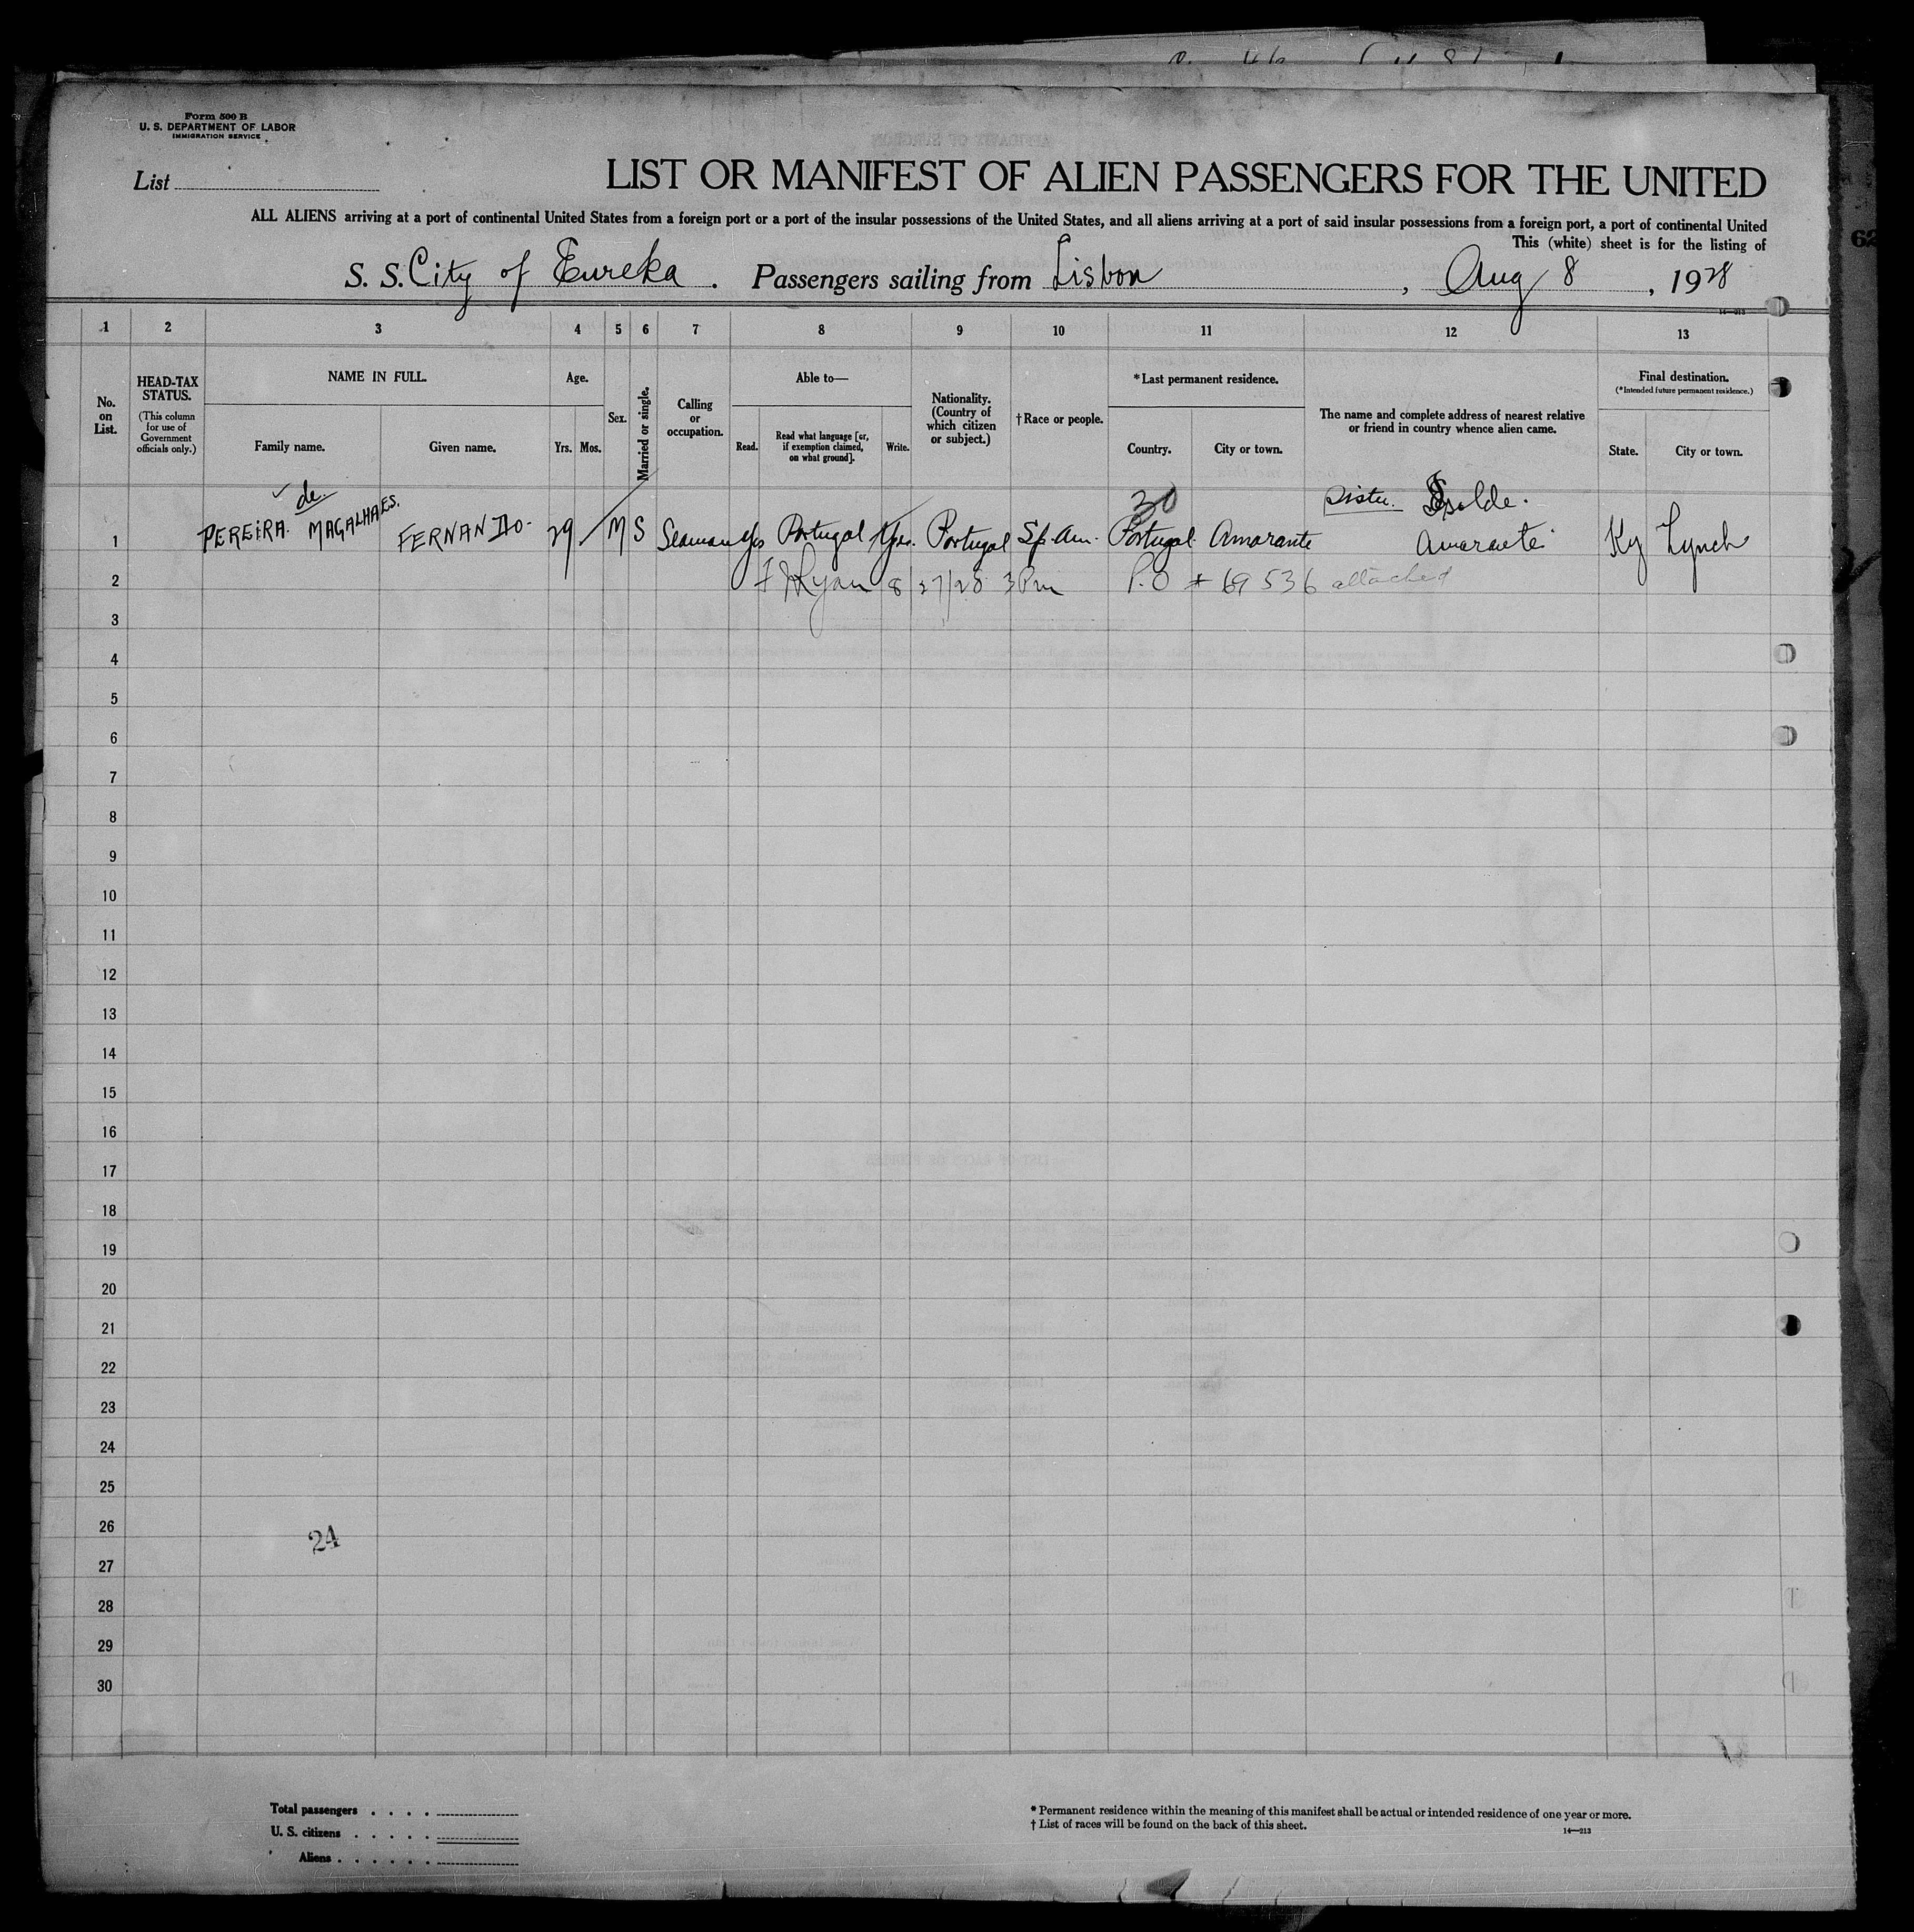 Form 500 B
U. S. DEPARTMENT OF LABOR
IMMIGRATION SERVICE
List
LIST OR MANIFEST OF ALIEN PASSENGERS FOR THE UNITED
ALL ALIENS arriving at a port of continental United States from a foreign port or a port of the insular possessions of the United States, and all aliens arriving at a port of said insular possessions from a foreign port, a port of continental United
This (white) sheet is for the listing of
62
S. S. City of Eureka . Passengers sailing from Lisbon , Aug 8 , 1928
14—213
1 2 3 4 5 6 7 8 9 10 11 12 13
No. on List.
HEAD-TAX STATUS.
(This column for use of Government officials only.)
NAME IN FULL.
Family name.
Given name.
Age.
Yrs. Mos.
Sex.
Married or single.
Calling or occupation.
Able to—
Read.
Read what language [or, if exemption claimed, on what ground].
Write.
Nationality. (Country of which citizen or subject.)
† Race or people.
* Last permanent residence.
Country.
City or town.
The name and complete address of nearest relative or friend in country whence alien came.
Final destination.
(*Intended future permanent residence.)
State.
City or town.
de 30 Sister
1 PEREIRA. MAGALHAES. FERNANDO. 29 M S Seaman Yes Portugal Yes. Portugal Sp. Am. Portugal Amarante Amarante Ky Lynch
2 F J Ryan 8/27/28 3 Pm P.O # 69536 attached
3
4
5
6
7
8
9
10
11
12
13
14
15
16
17
18
19
20
21
22
23
24
25
26
24
27
28
29
30
Total passengers . . . .
U. S. citizens . . . . .
Aliens . . . . . .
* Permanent residence within the meaning of this manifest shall be actual or intended residence of one year or more.
† List of races will be found on the back of this sheet.
14—213